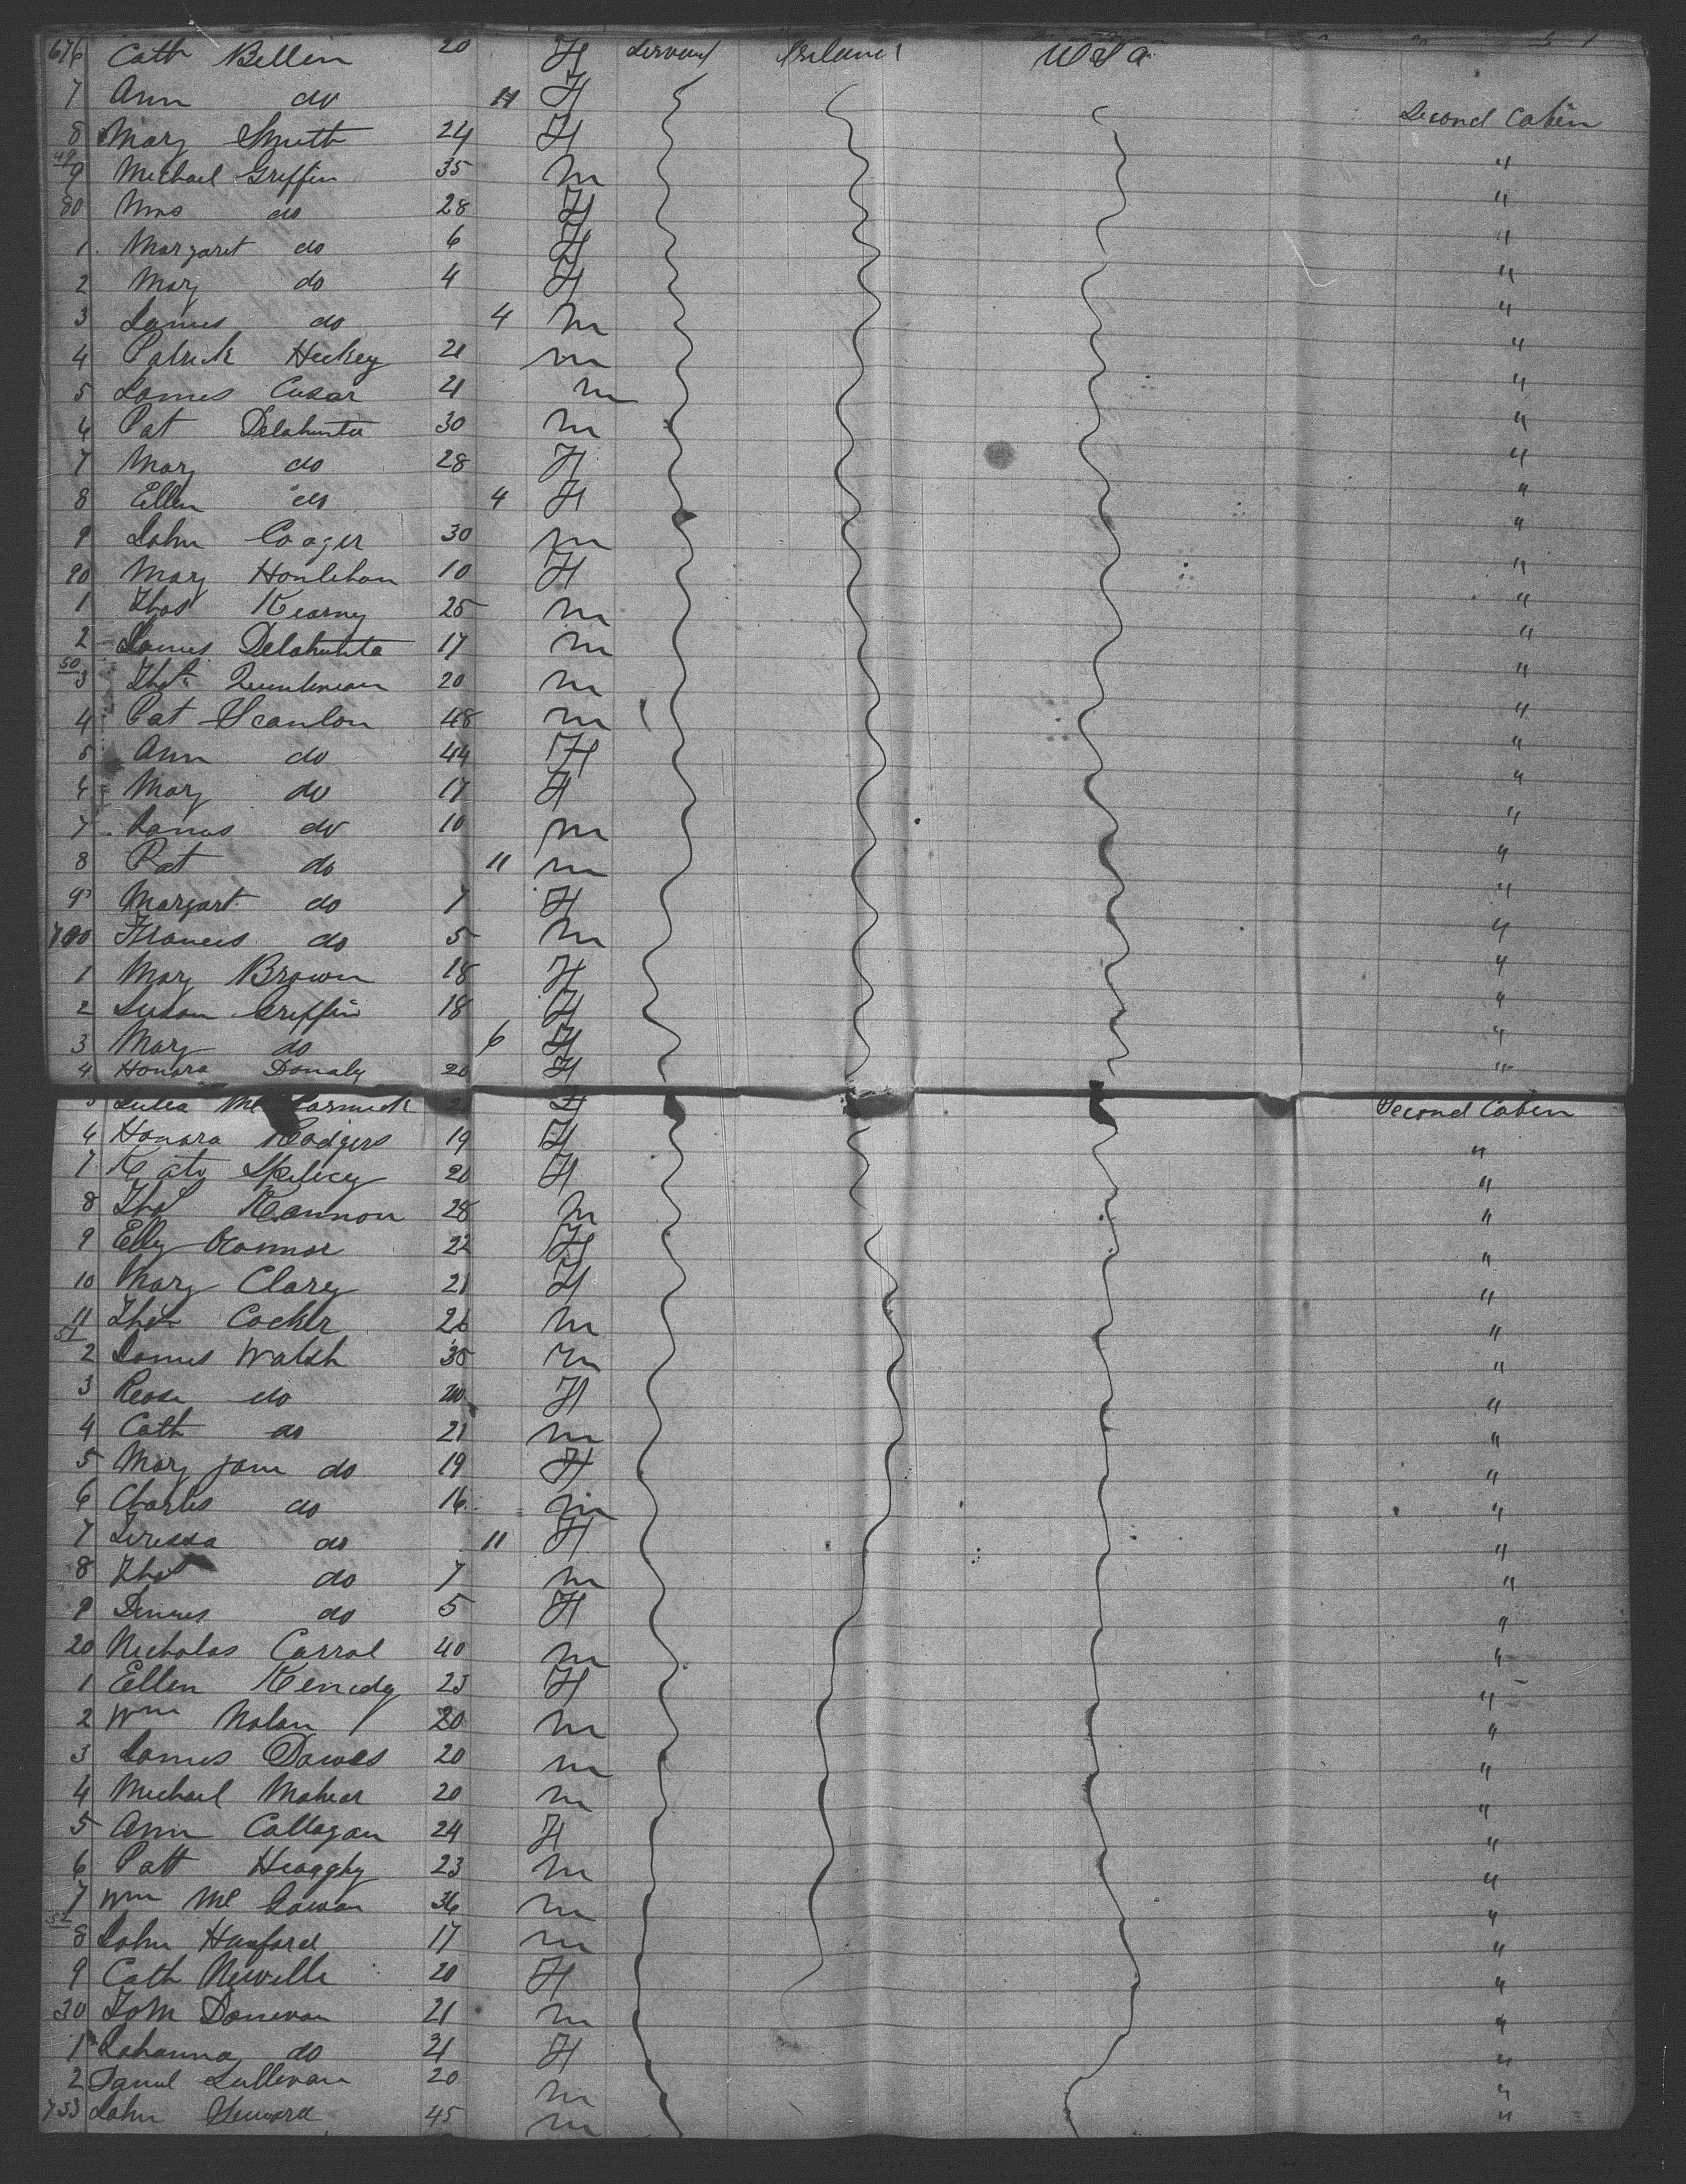 676 Cath Bellin 20 F Servant Ireland U S A
7 Ann do 11 F Second Cabin
8 Mary Smith 24 F "
49
9 Michael Griffin 35 m "
80 Mrs do 28 F "
1 Margaret do 6 F "
2 Mary do 4 F "
3 James do 4 m "
4 Patrick Hickey 21 m "
5 James Cusar 21 m "
6 Pat Delahunta 30 m "
7 Mary do 28 F "
8 Ellen do 4 F "
9 John Cooger 30 m "
90 Mary Honlihan 10 F "
1 Thos Kearney 25 m "
2 James Delahunta 17 m "
50
3 Thos 20 m "
4 Pat Scanlon 48 m "
5 Ann do 44 F "
6 Mary do 17 F "
7 James do 10 m "
8 Pat do 11 m "
9 Margart do 7 F "
700 Francis do 5 m "
1 Mary Brown 18 F "
2 Susan Griffin 18 F "
3 Mary do 6 F "
4 Honora Donaly 20 F "
5 Julia Mc Cormick F Second Cabin
6 Honora Rodgers 19 F "
7 Kate 20 F "
8 Thos Kennon 28 m "
9 Elly OConnor 22 F "
10 Mary Clarey 21 F "
11 Thos Cocker 26 m "
51
2 James Walsh 35 m "
3 Rose do F "
4 Cath do 21 m "
5 Mary Jane do 19 F "
6 Charles do 16 m "
7 Teressa do 11 F "
8 Thos do 7 m "
9 Dennes do 5 F "
20 Nicholas Carrol 40 m "
1 Ellen Kenedy 23 F "
2 Wm Nolan 20 m "
3 James Dawes 20 m "
4 Michael Mahear 20 m "
5 Ann Callagan 24 F "
6 Patt Heagghy 23 m "
7 Wm Mc Gowan 36 m "
52
8 John Hanford 17 m "
9 Cath Neville 20 F "
30 Tom Donevan 21 m "
1 Johanna do 21 F "
2 Danl Sullivan 20 m "
733 John 45 m "